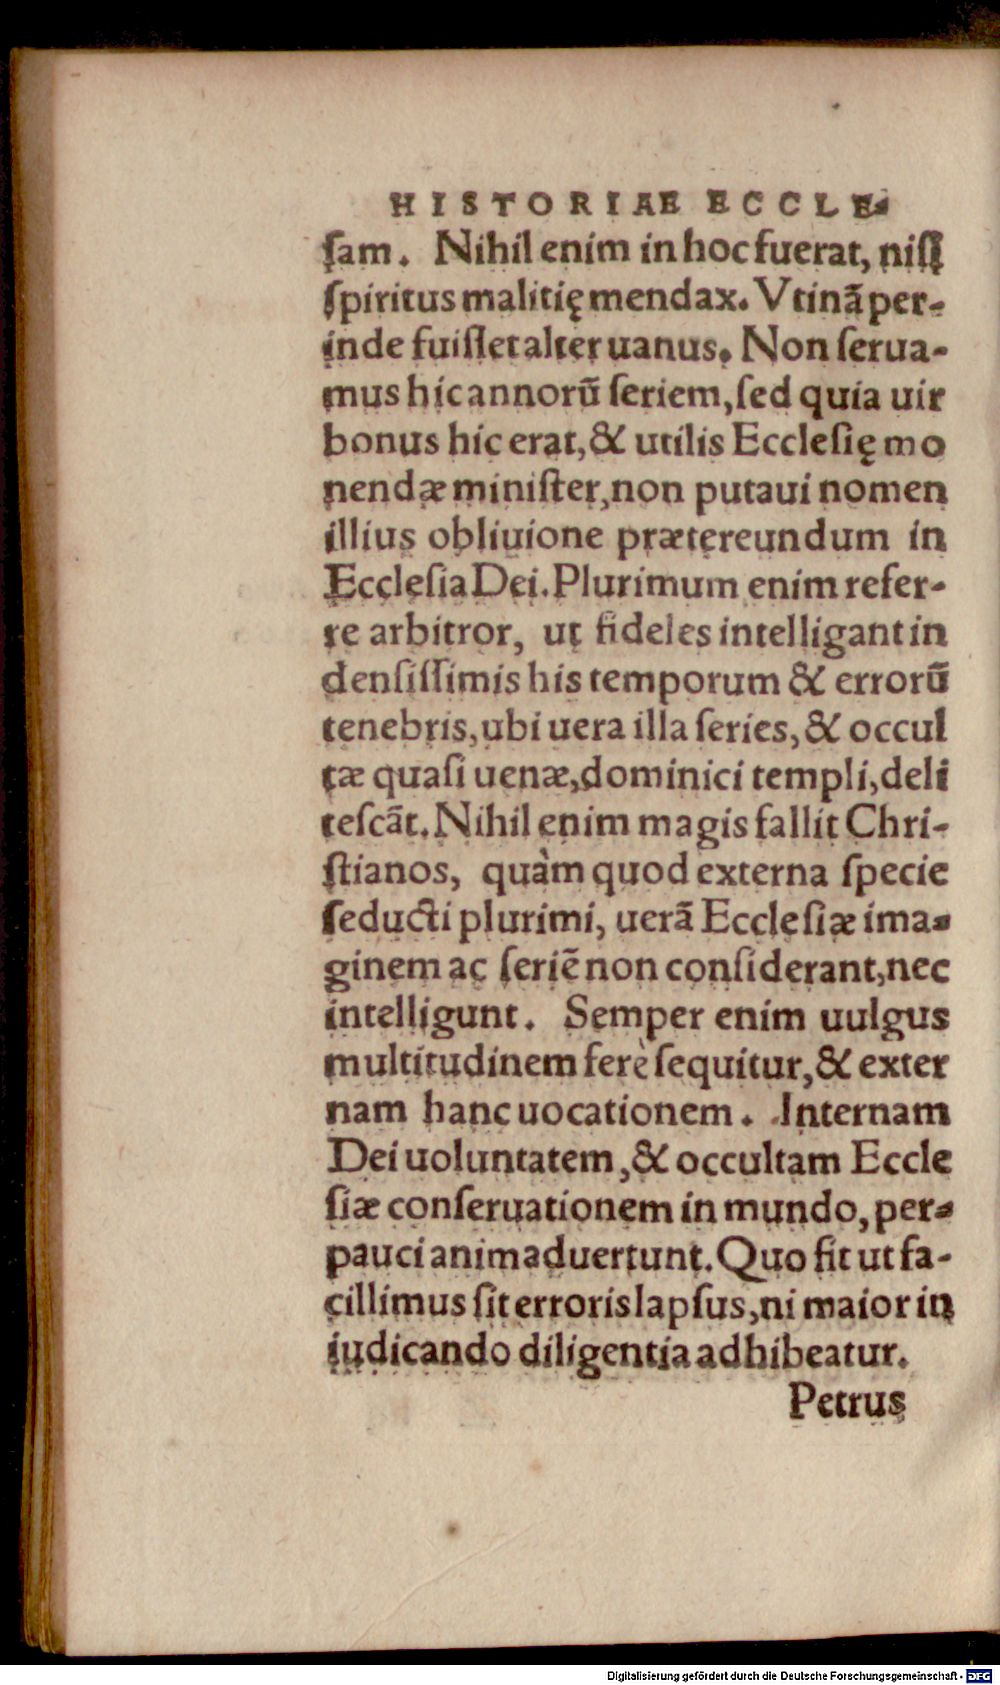 HISTORIAE ECCLE-
ſam. Nihil enim in hoc fuerat, niſi
ſpiritus malitię mendax. Vtinã per-
inde fuiſſet alter uanus. Non ſerua-
mus hic annorũ ſeriem, ſed quia uir
bonus hic erat, & utilis Eccleſię mo
nendæ miniſter, non putaui nomen
illius obliuione prætereundum in
Eccleſia Dei. Plurimum enim refer-
re arbitror, ut fideles intelligant in
denſiſſimis his temporum & errorũ
tenebris, ubi uera illa ſeries, & occul
tæ quaſi uenæ, dominici templi, deli
teſcãt. Nihil enim magis fallit Chri-
ſtianos, quàm quod externa ſpecie
ſeducti plurimi, uerã Eccleſiæ ima-
ginem ac ſeriẽ non conſiderant, nec
intelligunt. Semper enim uulgus
multitudinem ferè ſequitur, & exter
nam hanc uocationem. Internam
Dei uoluntatem, & occultam Eccle
ſiæ conſeruationem in mundo, per-
pauci animaduertunt. Quo fit ut fa-
cillimus ſit erroris lapſus, ni maior in
iudicando diligentia adhibeatur.
Petrus
Digitalisierung gefördert durch die Deutsche Forschungsgemeinschaft - DFG